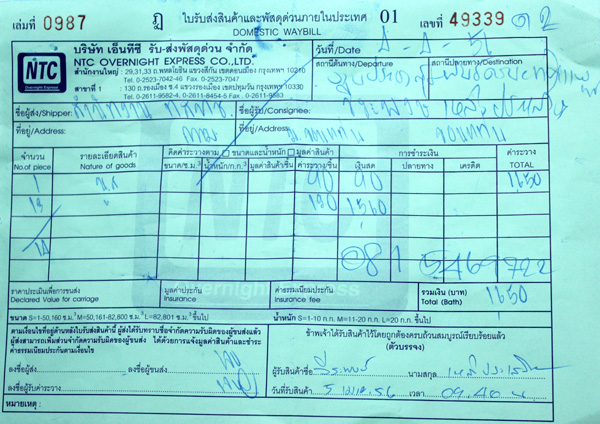 เล่มที่ 0987 ฏ ใบรับส่งสินค้าและพัสดุด่วนภายในประเทศ 01 เลขที่ 49339
DOMESTIC WAYBILL
NTC
Overnight Express
บริษัท เอ็นทีซี รับ-ส่งพัสดุด่วน จำกัด
NTC OVERNIGHT EXPRESS CO.,LTD.
สำนักงานใหญ่ : 29,31,33 ถ.พหลโยธิน แขวงสีกัน เขตดอนเมือง กรุงเทพฯ 10210
Tel. 0-2523-7042-46 Fax. 0-2523-7045
สาขาที่ 1 : 130 ถ.รองเมือง ซ.4 แขวงรองเมือง เขตปทุมวัน กรุงเทพฯ 10330
Tel. 0-2611-9582-4, 0-2611-8454-5 Fax. 0-2611-9583
วันที่/Date
สถานีต้นทาง/Departure สถานีปลายทาง/Destination
ชื่อผู้ส่ง/Shipper: ชื่อผู้รับ/Consignee:
ที่อยู่/Address: ที่อยู่/Address: ขอนแก่น
จำนวน รายละเอียดสินค้า คิดค่าระวางตาม ขนาดและน้ำหนัก มูลค่าสินค้า การชำระเงิน ค่าระวาง
No.of piece Nature of goods ขนาด/ซ.ม.³ น้ำหนัก/ก.ก.³ มูลค่าสินค้า/ชิ้น ค่าระวาง/ชิ้น เงินสด ปลายทาง เครดิต TOTAL
1 90 90 1650
13 120 1560
14
081 5469722
ราคาประเมินเพื่อการขนส่ง มูลค่าประกัน ค่าธรรมเนียมประกัน รวมเงิน (บาท) 1650
Declared Value for carriage Insurance Insurance fee Total (Bath)
ขนาด S=1-50,160 ซม.³ M=50,161-82,800 ซม.³ L=82,801 ซม.³ ขึ้นไป น้ำหนัก S=1-10 ก.ก. M=11-20 ก.ก. L=20 ก.ก. ขึ้นไป
ตามเงื่อนไขที่อยู่ด้านหลังใบรับส่งสินค้านี้ ผู้ส่งได้รับทราบข้อจำกัดความรับผิดของผู้ขนส่งแล้ว
ผู้ส่งสามารถเพิ่มส่วนจำกัดความรับผิดของผู้ขนส่ง ได้ด้วยการแจ้งมูลค่าสินค้าและชำระ
ค่าธรรมเนียมประกันตามเงื่อนไข
ข้าพเจ้าได้รับสินค้าไว้โดยถูกต้องครบถ้วนสมบูรณ์เรียบร้อยแล้ว
(ตัวบรรจง)
ลงชื่อผู้ส่ง ลงชื่อผู้ขนส่ง
ผู้รับสินค้าชื่อ นามสกุล
ลงชื่อผู้รับค่าระวาง
วันที่รับสินค้า 5 เม.ย. 56 เวลา 09.40 น
หมายเหตุ :